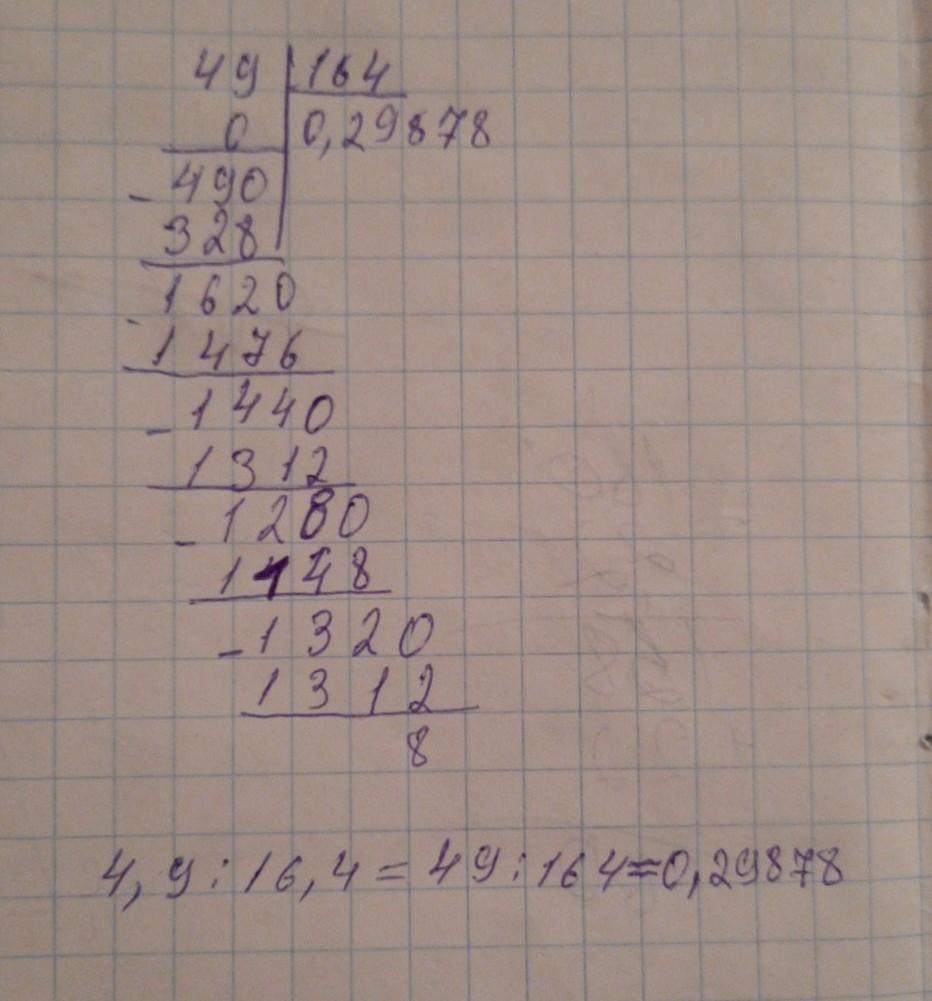 49 164
0 0,29878
- 490
328
- 1620
1476
- 1440
1312
- 1280
1148
- 1320
1312
8
4,9 : 16,4 = 49 : 164 ≈ 0,29878